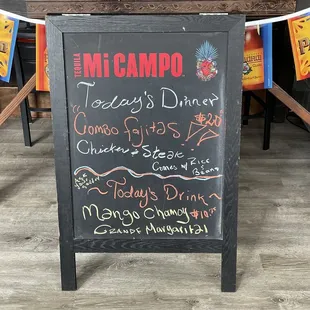 TEQUILA Mi CAMPO
Today's Dinner
Combo fajitas
Chicken & Steak
Comes w/ Rice
& Beans
~ Today's Drink ~
Mango Chamoy
Grande Margarita!